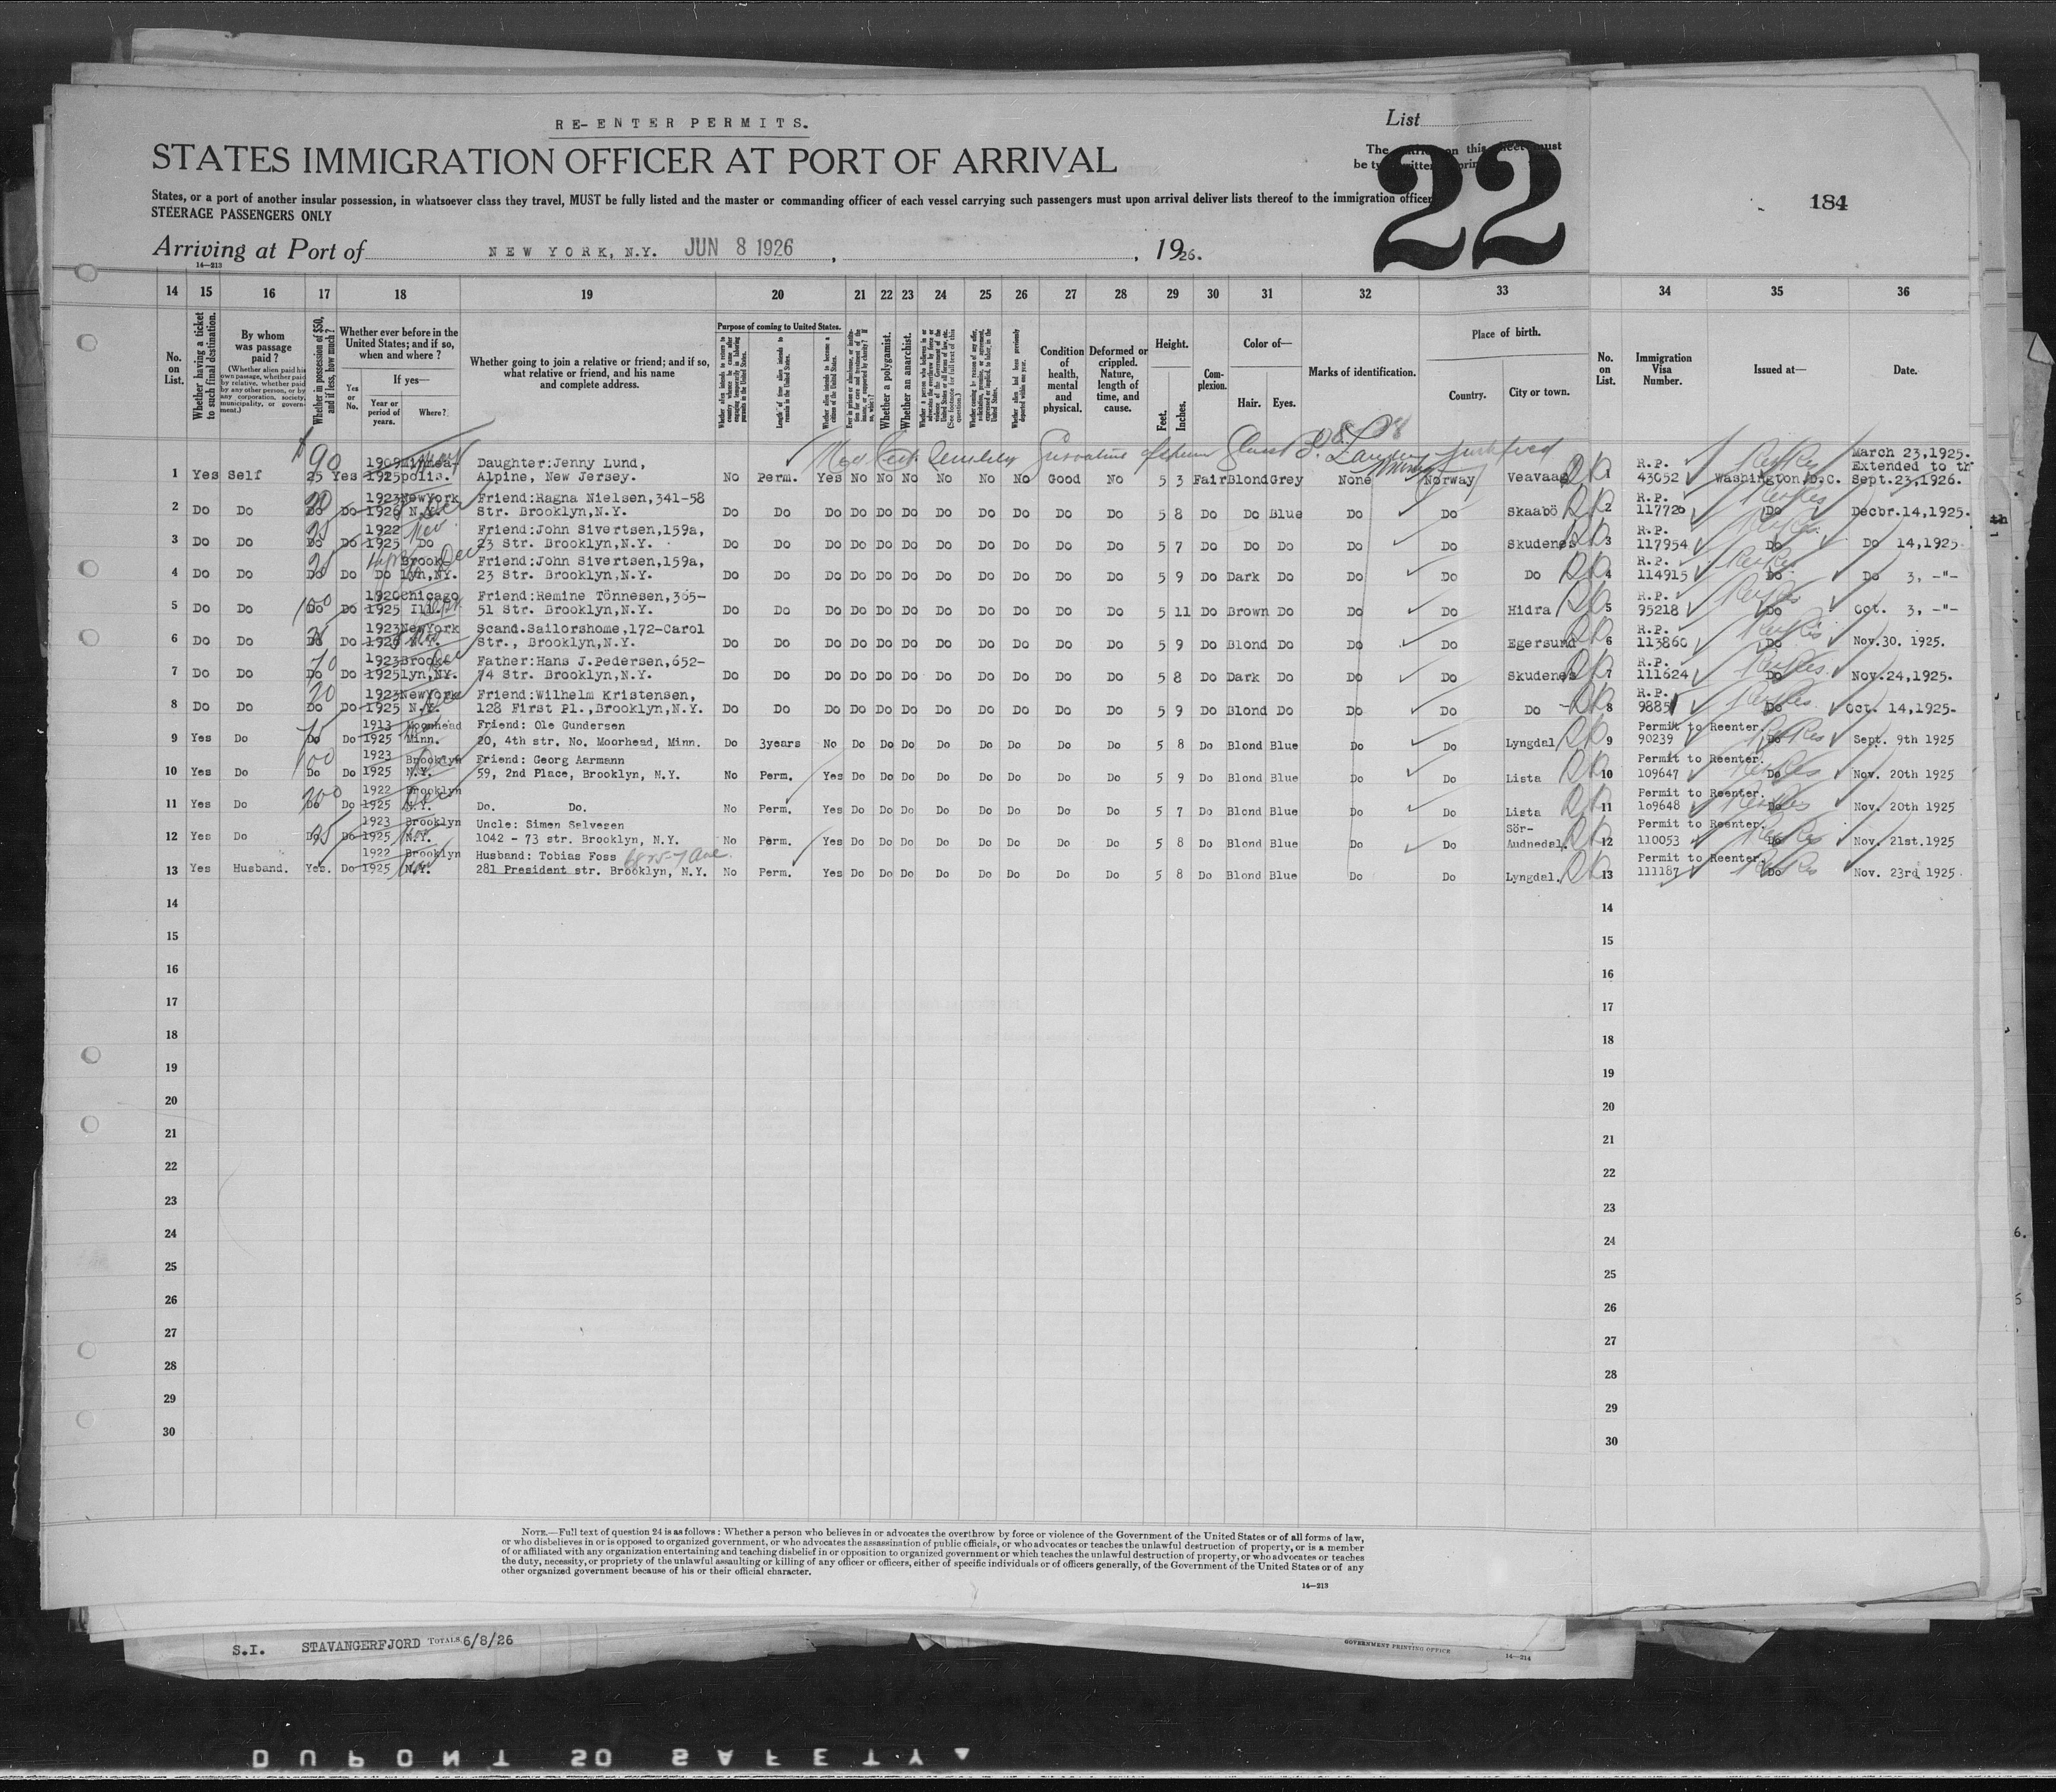 RE-ENTER PERMITS.
List
STATES IMMIGRATION OFFICER AT PORT OF ARRIVAL
The on this sheet must
22
184
States, or a port of another insular possession, in whatsoever class they travel, MUST be fully listed and the master or commanding officer of each vessel carrying such passengers must upon arrival deliver lists thereof to the immigration officer
STEERAGE PASSENGERS ONLY
Arriving at Port of NEW YORK, N.Y. JUN 8 1926 , , 1926.
14—213
14 15 16 17 18 19 20 21 22 23 24 25 26 27 28 29 30 31 32 33 34 35 36
No. on List.
Whether having a ticket to such final destination.
By whom was passage paid?
(Whether alien paid his own passage, whether paid by relative, whether paid by any other person, or by any corporation, society, municipality, or government.)
Whether in possession of $50, and if less, how much?
Whether ever before in the United States; and if so, when and where?
Yes or No.
If yes—
Year or period of years.
Where?
Whether going to join a relative or friend; and if so, what relative or friend, and his name and complete address.
Purpose of coming to United States.
Length of time alien intends to remain in the United States.
Whether alien intends to become a citizen of the United States.
Whether a polygamist.
Whether an anarchist.
Condition of health, mental and physical.
Deformed or crippled. Nature, length of time, and cause.
Height.
Feet. Inches.
Complexion.
Color of—
Hair. Eyes.
Marks of identification.
Place of birth.
Country. City or town.
No. on List.
Immigration Visa Number.
Issued at—
Date.
March 23,1925.
1909 Daughter:Jenny Lund, R.P. Extended to
1 Yes Self 25 Yes 1925 polis. Alpine, New Jersey. No Perm. Yes No No No No No No Good No 5 3 Fair Blond Grey None Norway Veavaag 1 43052 Washington,D.C. Sept.23,1926.
1923 NewYork Friend:Ragna Nielsen,341-58 R.P.
2 Do Do Do Do 1926 N.Y. Str. Brooklyn,N.Y. Do Do Do Do Do Do Do Do Do Do Do 5 8 Do Do Blue Do Do Skaabö 2 117720 Do Decbr.14,1925.
1922 Friend:John Sivertsen,159a, R.P.
3 Do Do Do Do 1925 Do 23 Str. Brooklyn,N.Y. Do Do Do Do Do Do Do Do Do Do Do 5 7 Do Do Do Do Do Skudenes 3 117954 Do Do 14,1925
Brook- Friend:John Sivertsen,159a, R.P.
4 Do Do Do Do Do lyn,NY. 23 Str. Brooklyn,N.Y. Do Do Do Do Do Do Do Do Do Do Do 5 9 Do Dark Do Do Do Do 4 114915 Do Do 3, -"-
1920 Chicago Friend:Remine Tönnesen,365- R.P.
5 Do Do Do Do 1925 Ill. 51 Str. Brooklyn,N.Y. Do Do Do Do Do Do Do Do Do Do Do 5 11 Do Brown Do Do Do Hidra 5 95218 Do Oct. 3, -"-
1923 NewYork Scand.Sailorshome,172-Carol R.P.
6 Do Do Do Do 1926 N.Y. Str., Brooklyn,N.Y. Do Do Do Do Do Do Do Do Do Do Do 5 9 Do Blond Do Do Do Egersund 6 113860 Do Nov.30. 1925.
1923 Brook- Father:Hans J.Pedersen,652- R.P.
7 Do Do Do Do 1925 lyn,NY. 74 Str. Brooklyn,N.Y. Do Do Do Do Do Do Do Do Do Do Do 5 8 Do Dark Do Do Do Skudenes 7 111624 Do Nov.24,1925.
1923 NewYork Friend:Wilhelm Kristensen, R.P.
8 Do Do Do Do 1925 N.Y. 128 First Pl.,Brooklyn,N.Y. Do Do Do Do Do Do Do Do Do Do Do 5 9 Do Blond Do Do Do Do 8 Do Oct. 14,1925.
1913 Moorhead Friend: Ole Gundersen Permit to Reenter.
9 Yes Do Do Do 1925 Minn. 20, 4th str. No. Moorhead, Minn. Do 3years No Do Do Do Do Do Do Do Do 5 8 Do Blond Blue Do Do Lyngdal 9 90239 Do Sept. 9th 1925
1923 Brooklyn Friend: Georg Aarmann Permit to Reenter.
10 Yes Do Do Do 1925 N.Y. 59, 2nd Place, Brooklyn, N.Y. No Perm. Yes Do Do Do Do Do Do Do Do 5 9 Do Blond Blue Do Do Lista 10 109647 Do Nov. 20th 1925
1922 Brooklyn Permit to Reenter.
11 Yes Do Do Do 1925 N.Y. Do. Do. No Perm. Yes Do Do Do Do Do Do Do Do 5 7 Do Blond Blue Do Do Lista 11 109648 Do Nov. 20th 1925
1923 Brooklyn Uncle: Simen Salvesen Sör- Permit to Reenter.
12 Yes Do Do Do 1925 N.Y. 1042 - 73 str. Brooklyn, N.Y. No Perm. Yes Do Do Do Do Do Do Do Do 5 8 Do Blond Blue Do Do Audnedal. 12 110053 Do Nov. 21st.1925
1922 Brooklyn Husband: Tobias Foss Permit to Reenter.
13 Yes Husband. Yes. Do 1925 N.Y. 281 President str. Brooklyn, N.Y. No Perm. Yes Do Do Do Do Do Do Do Do 5 8 Do Blond Blue Do Do Lyngdal. 13 111187 Do Nov. 23rd 1925
14 14
15 15
16 16
17 17
18 18
19 19
20 20
21 21
22 22
23 23
24 24
25 25
26 26
27 27
28 28
29 29
30 30
NOTE.—Full text of question 24 is as follows: Whether a person who believes in or advocates the overthrow by force or violence of the Government of the United States or of all forms of law,
or who disbelieves in or is opposed to organized government, or who advocates the assassination of public officials, or who advocates or teaches the unlawful destruction of property, or is a member
of or affiliated with any organization entertaining and teaching disbelief in or opposition to organized government or which teaches the unlawful destruction of property, or who advocates or teaches
the duty, necessity, or propriety of the unlawful assaulting or killing of any officer or officers, either of specific individuals or of officers generally, of the Government of the United States or of any
other organized government because of his or their official character.
14—213
S.I. STAVANGERFJORD TOTALS 6/8/26
GOVERNMENT PRINTING OFFICE
14—214
DUPONT SO SAFETY